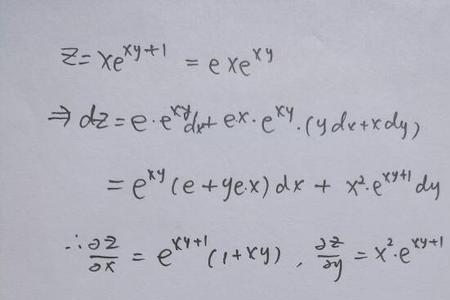 z = xe^{xy+1} = exe^{xy}
⇒ dz = e·e^{xy}dx + ex·e^{xy}·(ydx+xdy)
= e^{xy}(e+ye·x)dx + x²·e^{xy+1}dy
∴ ∂z/∂x = e^{xy+1}(1+xy), ∂z/∂y = x²·e^{xy+1}